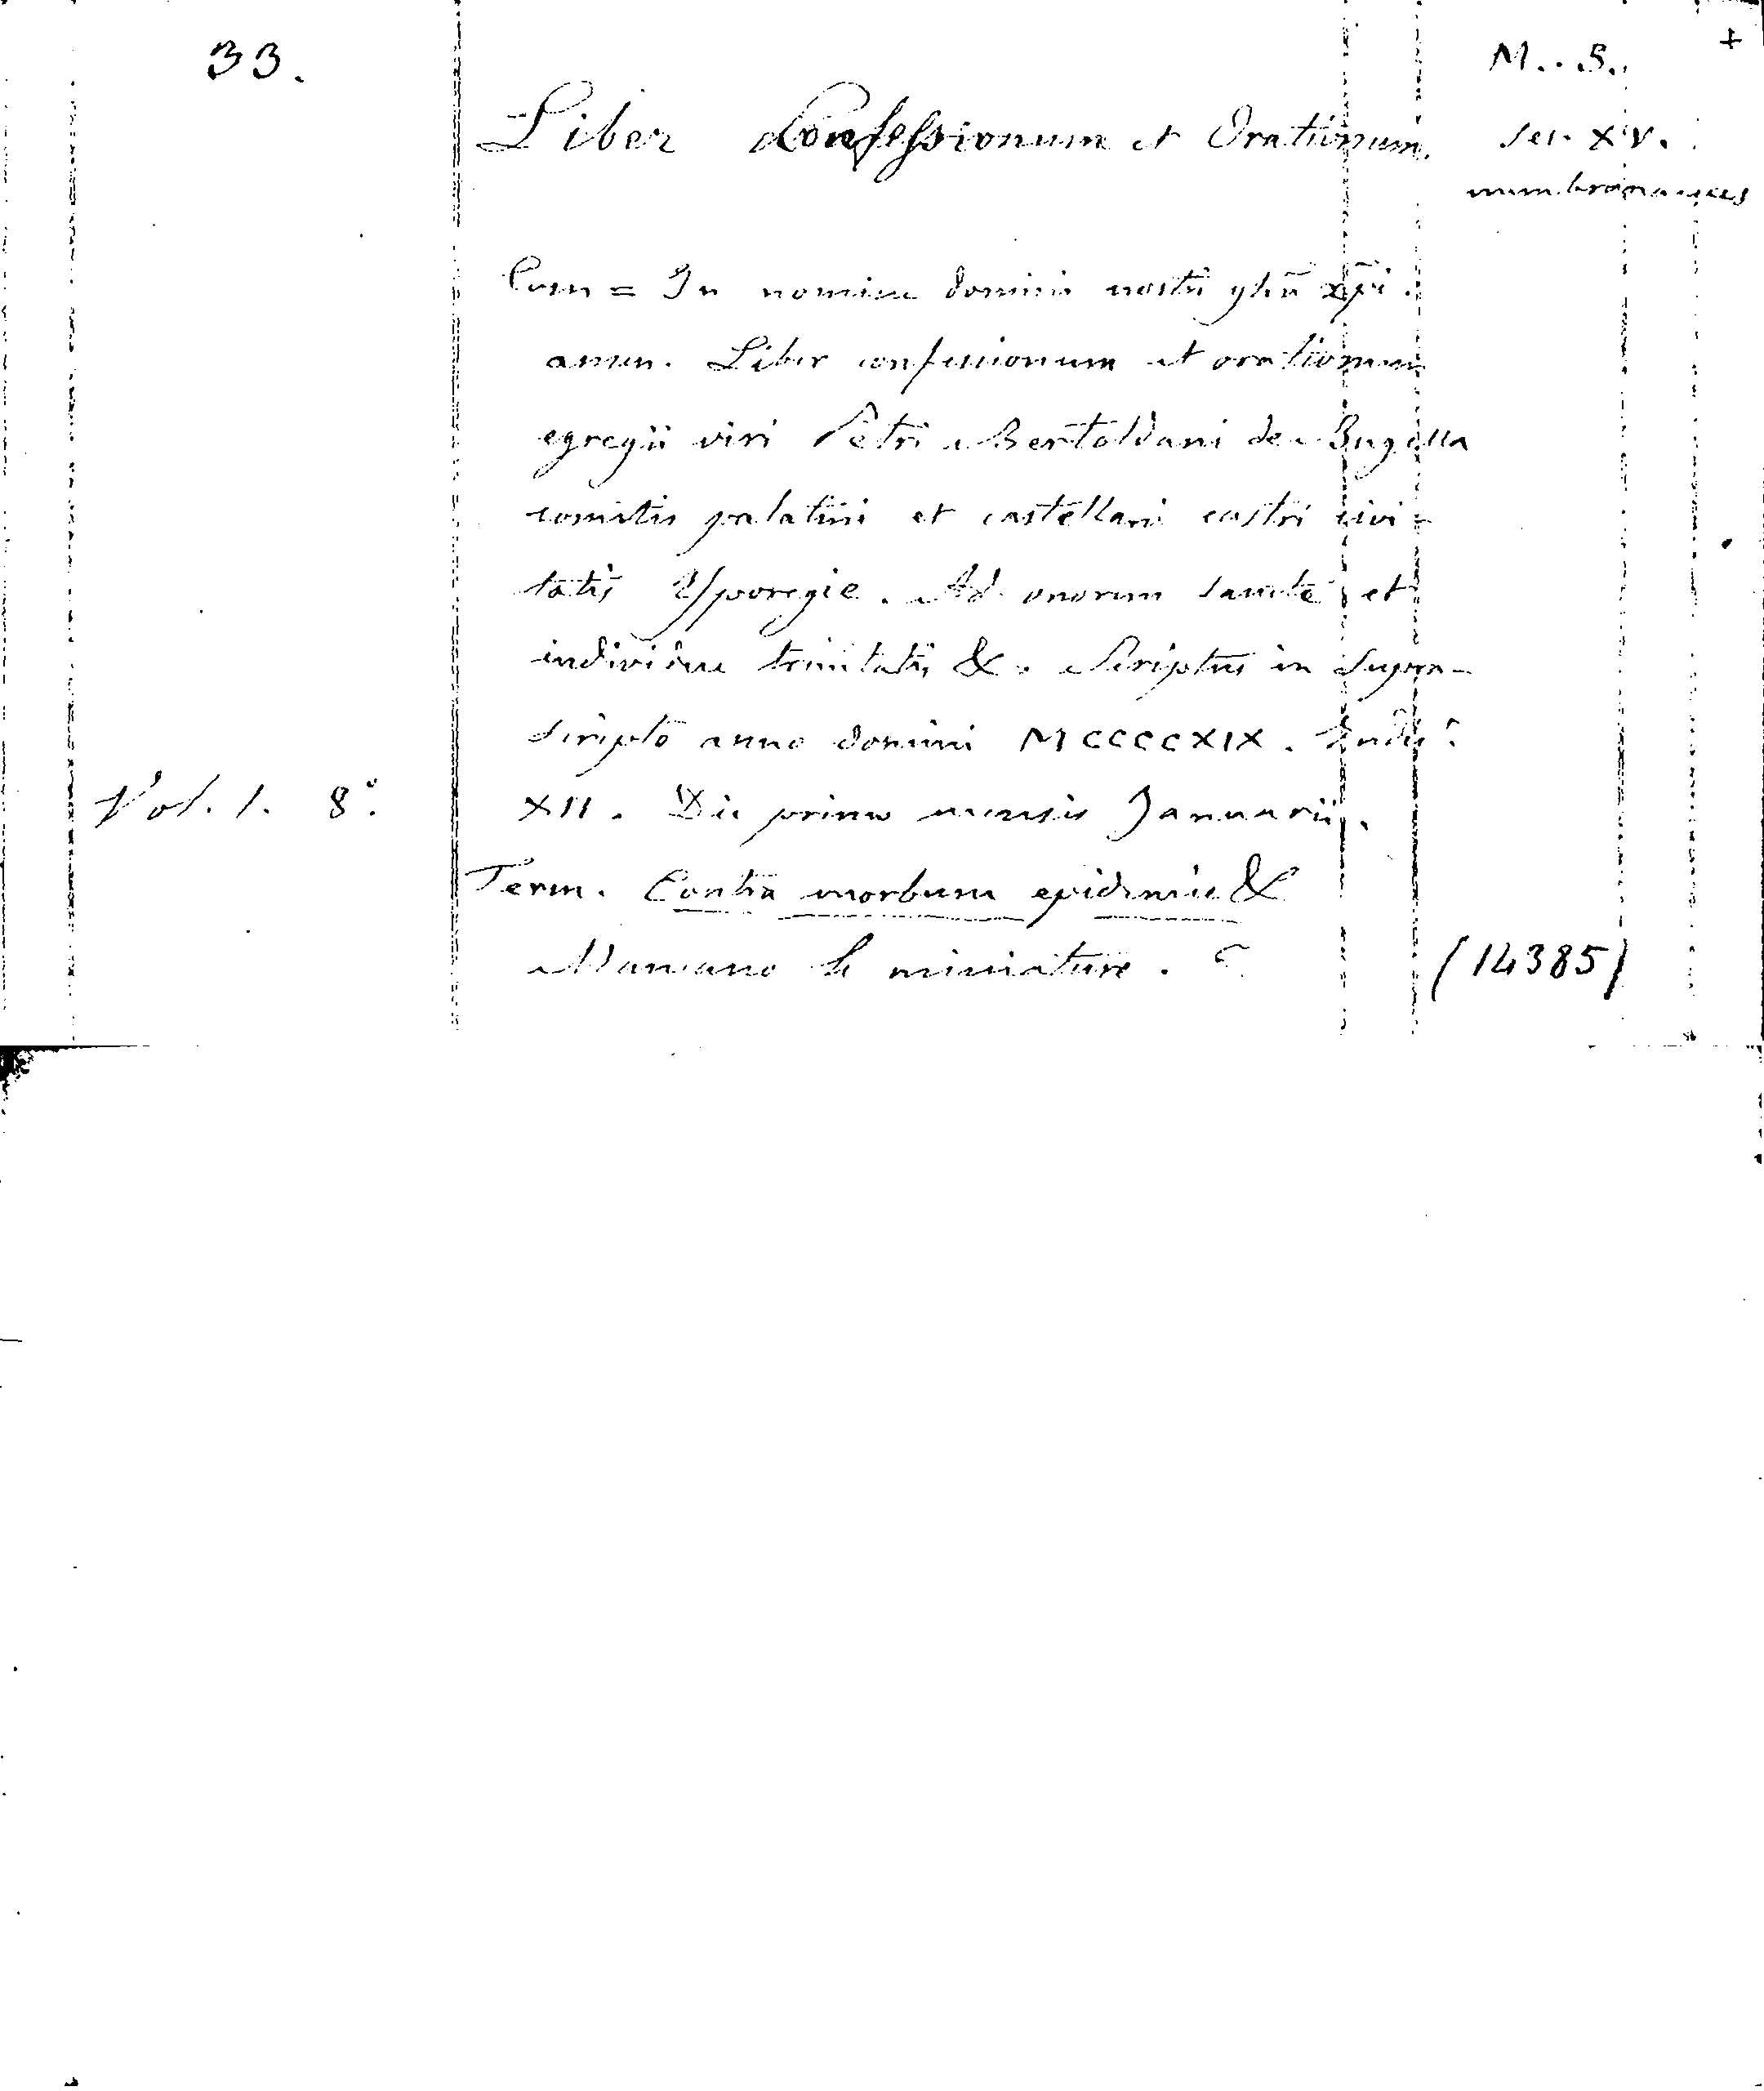 33.
M.. S. +
Liber Confessionum et Orationum. Sec. XV.
membranaceus
Com = In nomine domini nostri yhũ xp̃i.
amen. Liber confessionum et orationum
egregii viri Petri Bertoldani de Bugella
comitis palatini et castellani castri civi-
tatis Ysporegie. Ad onorem sancte et
individue trinitatis &. Scriptus in supra-
scripto anno domini MCCCCXIX. Indi
Vol. 1. 8°. XII. Die primo mensis Januarii.
Term. Contra morbum epidemie &
Mancano le miniature.
(14385)